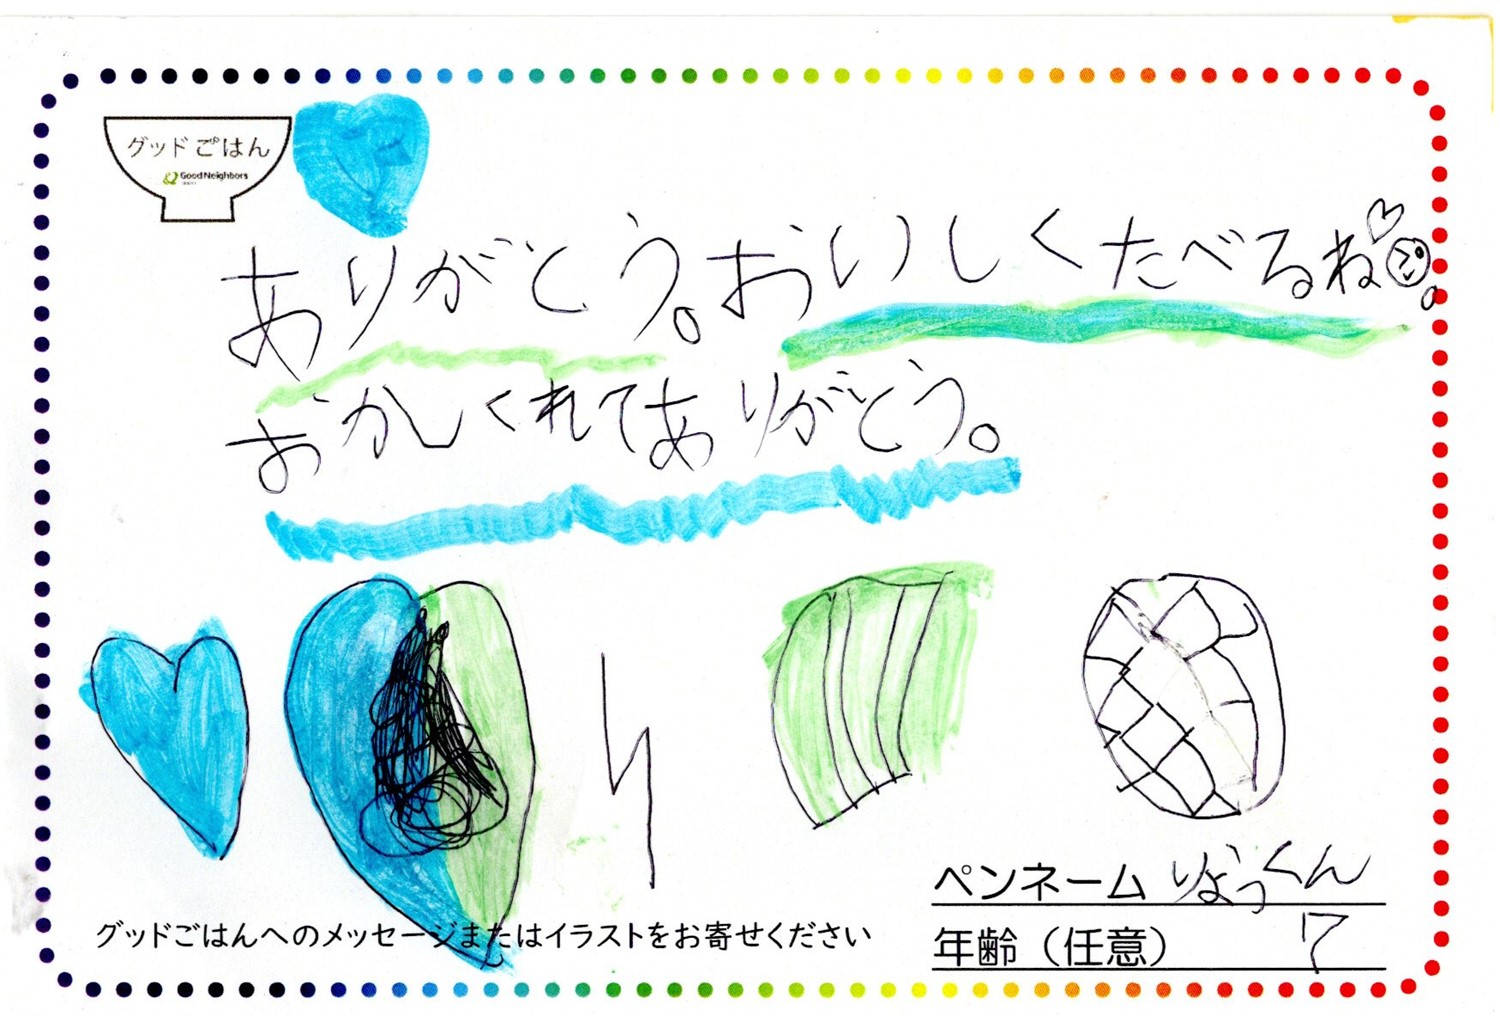 グッドごはん
Good Neighbors
ありがとう。おいしくたべるね。
おかしくれてありがとう。
グッドごはんへのメッセージまたはイラストをお寄せください
ペンネーム りょっくん
年齢（任意） 7